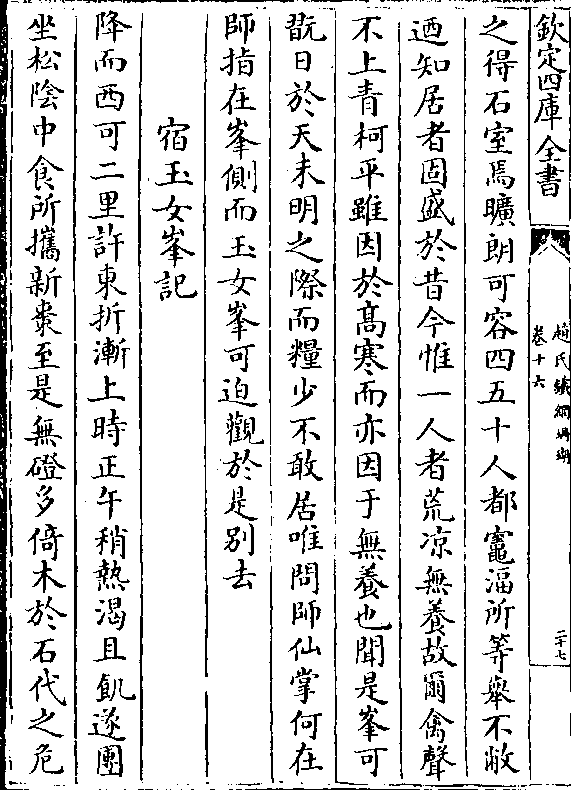 欽定四庫全書
趙氏鐵網珊瑚
卷十六
二十七
之得石室焉曠朗可容四五十人都竈湢所等舉不敝
迺知居者固盛於昔今惟一人者荒凉無養故爾禽聲
不上青柯平雖因於高寒而亦因于無養也聞是峯可
翫日於天未明之際而糧少不敢居唯問師仙掌何在
師指在峯側而玉女峯可迫觀於是别去
宿玉女峯記
降而西可二里許東折漸上時正午稍熱渴且飢遂團
坐松陰中食所攜新棗至是無磴多倚木於石代之危